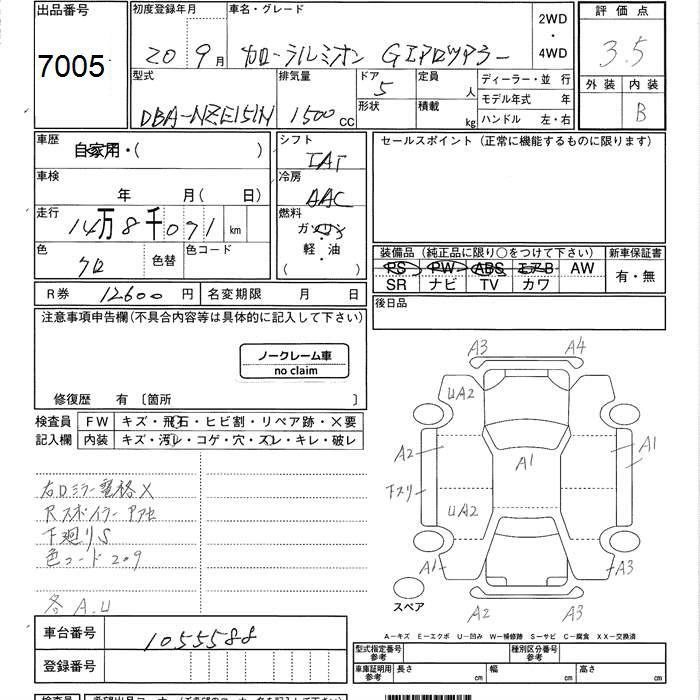 出品番号 初度登録年月 車名・グレード 2WD・4WD 評価点
7005 20 9月 カローラルミオン Gエアロツアラー 3.5
型式 排気量 ドア 定員 ディーラー・並行 外装 内装
DBA-NZE151N 1500cc 5 人 モデル年式 年 B
形状 積載 kg ハンドル 左・右
車歴 自家用・( ) シフト IAT セールスポイント (正常に機能するものに限ります)
車検 年 月(日) 冷房 AAC
走行 14万8千071 km 燃料 ガソリン・軽・油( )
色 クロ 色替 色コード
装備品 (純正品に限り○をつけて下さい) 新車保証書
PS PW ABS エアB AW 有・無
SR ナビ TV カワ
R券 12600円 名変期限 月 日 後日品
注意事項申告欄(不具合内容等は具体的に記入して下さい)
ノークレーム車
no claim
修復歴 有 〔箇所 〕
検査員 FW キズ・飛石・ヒビ割・リペア跡・×要
記入欄 内装 キズ・汚レ・コゲ・穴・スレ・キレ・破レ
右Dミラー電格X
Rスポイラー
下廻りS
色コード209
各A.U
A3 A4
UA2
A2 A1 A1
下スリ
UA2
A1 A3
スペア
A2 A3
A-キズ E-エクボ U-凹み W-補修跡 S-サビ C-腐食 XX-交換済
車台番号 1055588
登録番号
型式指定番号 参考 種別区分番号 参考
車庫証明用 参考 長さ cm 幅 cm 高さ cm